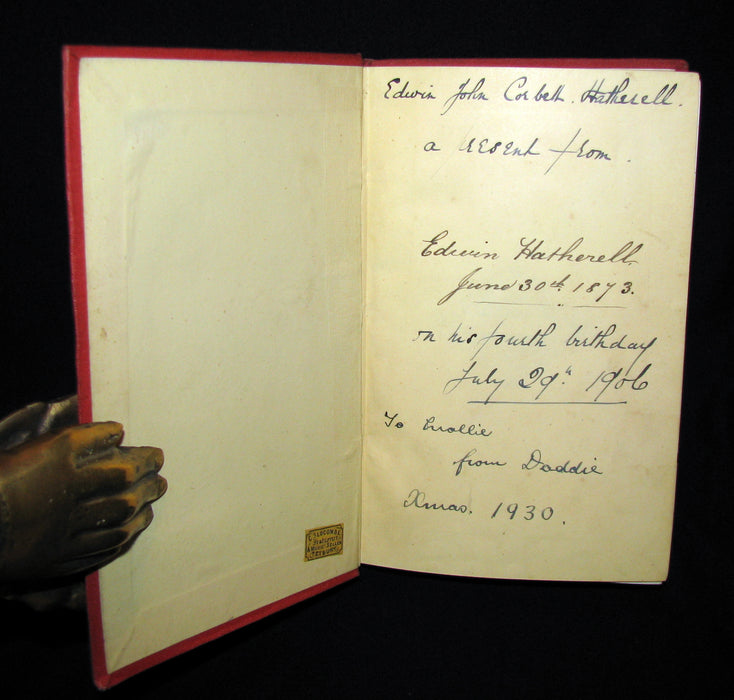 Edwin John Corbett Hatherell.
a present from.
Edwin Hatherell
June 30th 1873.
on his fourth birthday
July 29th 1906
To Mollie
from Daddie
Xmas. 1930.